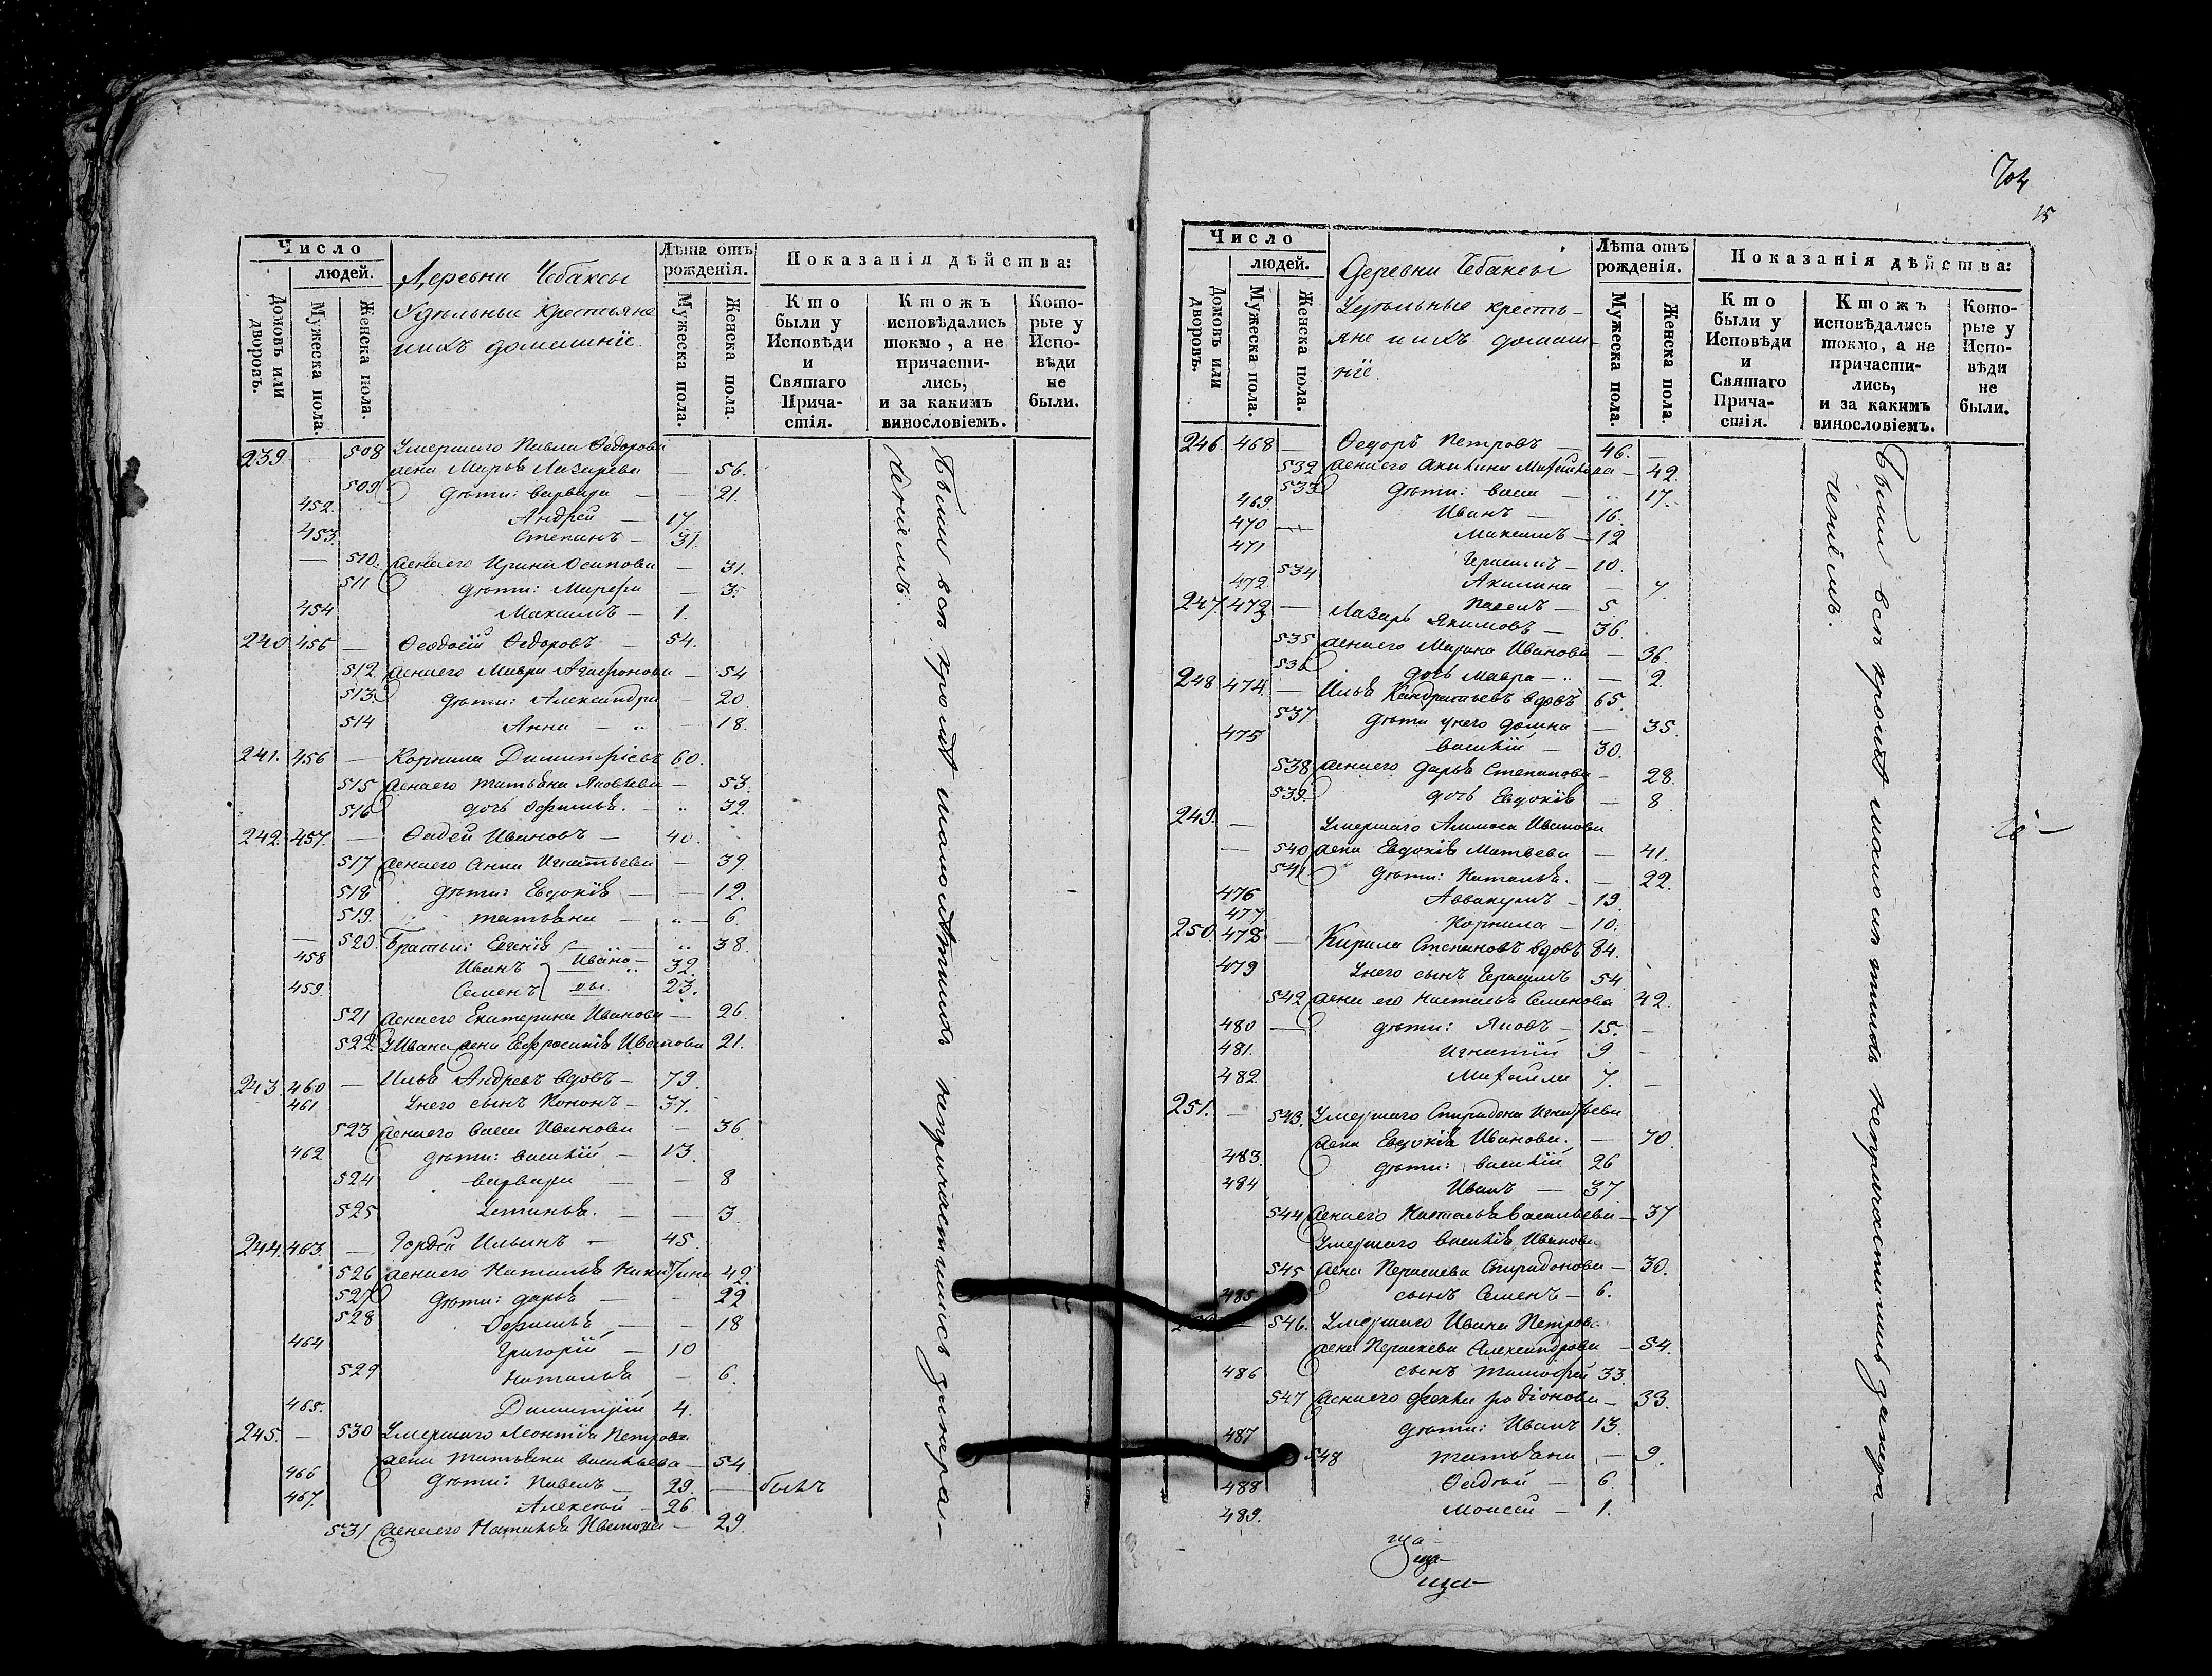 Число
людей.
Домовъ или дворовъ.
Мужеска пола.
Женска пола.
Деревни Чебаксы
Удѣльные крестьяне
и ихъ домашніе.
Лѣта отъ рожденія.
Мужеска пола.
Женска пола.
Показанія дѣйства:
Кто были у Исповѣди и Святаго Причастія.
Ктожъ исповѣдались токмо, а не причастились, и за какимъ винословіемъ.
Которые у Исповѣди не были.
239. 508 Умершаго Павла Ѳедорова
жена Марья Лазарева — 56.
509 дѣти: Варвара — — 21.
452. Андрей — 17.
453. Степанъ — 31.
— 510. жена его Ирина Осипова — 31.
511 дѣти: Марѳа — 3.
454 Максимъ — 1.
240 455 — Ѳеодосій Ѳедоровъ — 54.
512 жена его Мавра Агаѳонова — 54
513. дѣти: Александра — 20.
514 Анна — — 18.
241. 456 — Корнила Димитріевъ 60.
515 жена его Татьяна Яковлева — 53.
516 дочь Офимья. — 32.
242. 457. — Фадей Ивановъ — 40.
517 жена его Анна Игнатьева — 39.
518 дѣти: Евдокія — — 12.
519. Татьяна — — 6.
— 520. Братьи: Евгенія — 38.
458 Иванъ Ивано- 32.
459. Семенъ вы. 23.
521 жена его Екатерина Иванова — 26.
522. У Ивана жена Евфросинія Иванова 21.
243 460 — Илья Андреевъ вдовъ — 79.
461 У него сынъ Кононъ — 37.
523 жена его Васса Иванова — 36.
462 дѣти: Василій — 13.
524 Варвара — — 8
525 Устинья. — — 3.
244. 463. — Гордей Ильинъ — 45.
526 жена его Наталья Никитина 42.
527 дѣти: Дарья — — 22
528 Офимья — — 18
464 Григорій — 10
529 Наталья — 6.
465. Димитрій 4.
245. — 530 Умершаго Леонтія Петрова
жена Татьяна Васильева — 54
466 дѣти: Павелъ — 29. — былъ
467. Алексѣй — 26.
531. жена его Наталья Иванова — 29.
Были всѣ кромѣ малолѣтнихъ непричастились за нера-
ченіемъ.
704
15
Число
людей.
Домовъ или дворовъ.
Мужеска пола.
Женска пола.
Деревни Чебаксы
Удѣльные кресть-
яне и ихъ домаш-
ніе.
Лѣта отъ рожденія.
Мужеска пола.
Женска пола.
Показанія дѣйства:
Кто были у Исповѣди и Святаго Причастія.
Ктожъ исповѣдались токмо, а не причастились, и за какимъ винословіемъ.
Которые у Исповѣди не были.
246. 468 — Ѳедоръ Петровъ — 46. —
532 жена его Акилина Михайлова — 42.
533 дѣти: Васса — 17.
469. Иванъ — 16.
470 — Максимъ — 12
471 Герасимъ — 10.
534 Акилина — 7.
472. Павелъ — 5.
247. 473 — Лазарь Якимовъ — 36.
535 жена его Марина Иванова — 36.
536 дочь Мавра — — 2.
248 474. — Илья Кондратьевъ вдовъ 65.
537 дѣти у него Домна — 35.
475 Василій — 30.
538 жена его Дарья Степанова — 28.
539. дочь Евдокія — 8.
249. — Умершаго Аммоса Иванова
— 540 жена Евдокія Матвеева — 41.
541 дѣти: Наталья. — 22.
476 Аввакумъ — 19.
477 Корнила — 10.
250. 478 — Кирила Степановъ вдовъ 84.
479 У него сынъ Герасимъ 54.
542 жена его Настасья Семенова 42.
480 — дѣти: Яковъ — 15. —
481. Игнатій 9 —
482. Михайла 7. —
251. — 543. Умершаго Спиридона Игнатьева
жена Евдокія Иванова. — 70.
483. дѣти: Василій 26
484 Иванъ — 37
544 жена его Наталья Васильева — 37
Умершаго Василія Иванова
545 жена Параскева Спиридонова — 30.
485 сынъ Семенъ — 6.
— 546. Умершаго Ивана Петрова
жена Параскева Александрова — 54.
486 сынъ Тимофей 33.
547 жена его Фекла Родіонова — 33.
487 дѣти: Иванъ 13.
548 Татьяна — 9.
488 Фадѣй — 6.
489. Моисей — 1.
Были всѣ кромѣ малолѣтнихъ непричастились за нера-
ченіемъ.